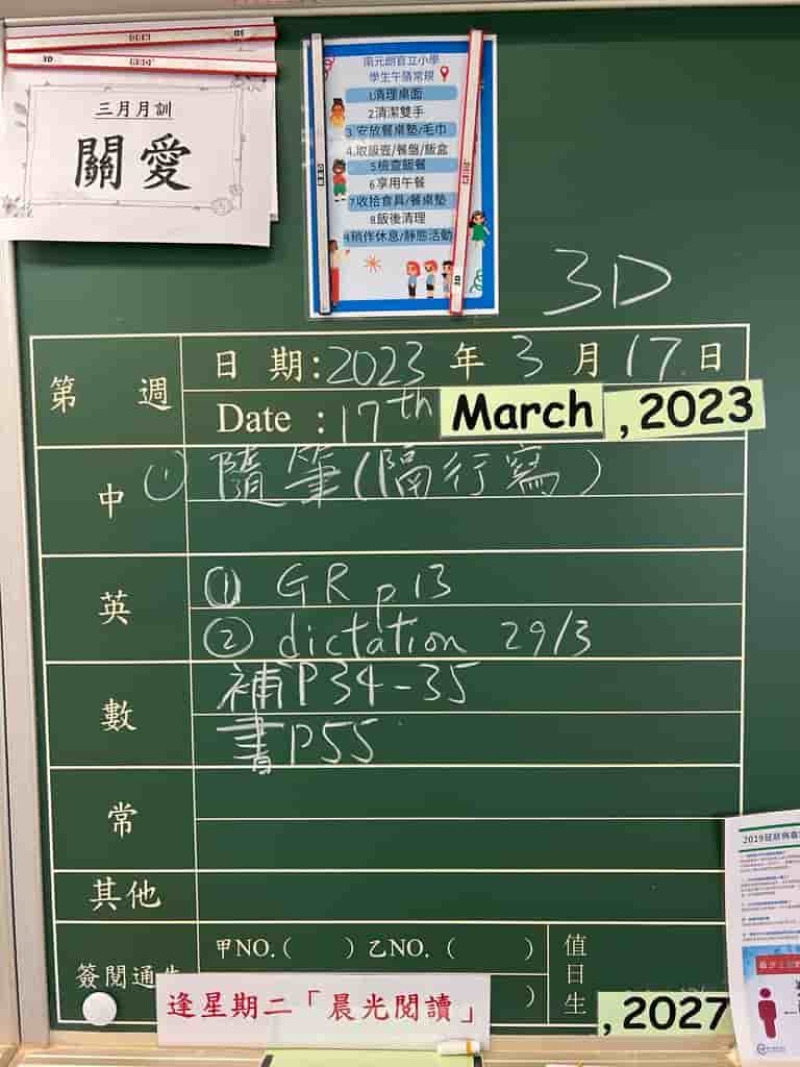 三月月訓
關愛
南元朗官立小學
學生午膳常規
1.清理桌面
2.清潔雙手
3.安放餐桌墊/毛巾
4.取飯壺/餐盤/飯盒
5.檢查飯餐
6.享用午餐
7.收拾食具/餐桌墊
8.飯後清理
9.稍作休息/靜態活動
3D
第 週
日 期:2023 年 3 月 17 日
Date :17th March ,2023
中 ① 隨筆(隔行寫)
英 ① GR p 13
② dictation 29/3
數 補P34-35
書P55
常
其他
簽閱通告 甲NO.( ) 乙NO. ( ) 值日生
)
逢星期二「晨光閱讀」
,2027